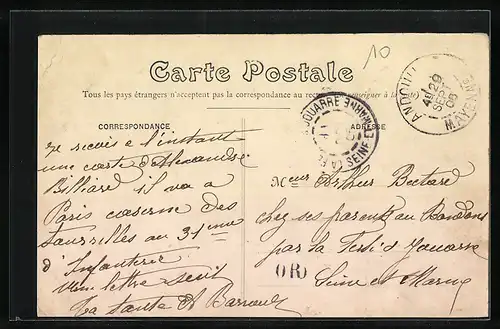 10
Carte Postale
Tous les pays étrangers n'acceptent pas la correspondance au recto (se renseigner à la poste)
CORRESPONDANCE
ADRESSE
JOUARRE
SEINE ET MARNE
ANDOUILLÉ
MAYENNE
29
SEPT
je reçois à l'instant
une carte d'Alexandre
Billiard il va a
Paris caserne des
tourelles au 31eme
d'Infanterie
une lettre suit
ta tante
Mcieur Arthur
chez ses parents au
par la Ferté s/ Jouarre
Seine et Marne
OR